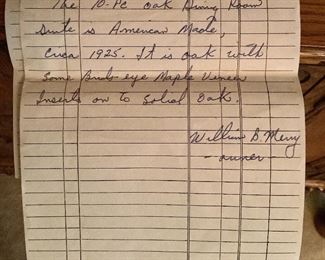 The 10-Pc oak Dining Room
Suite is American Made,
Circa 1925. It is oak with
Some Bird-eye Maple Veneer
Inserts on to Solid Oak.
William S. Merry
- owner -